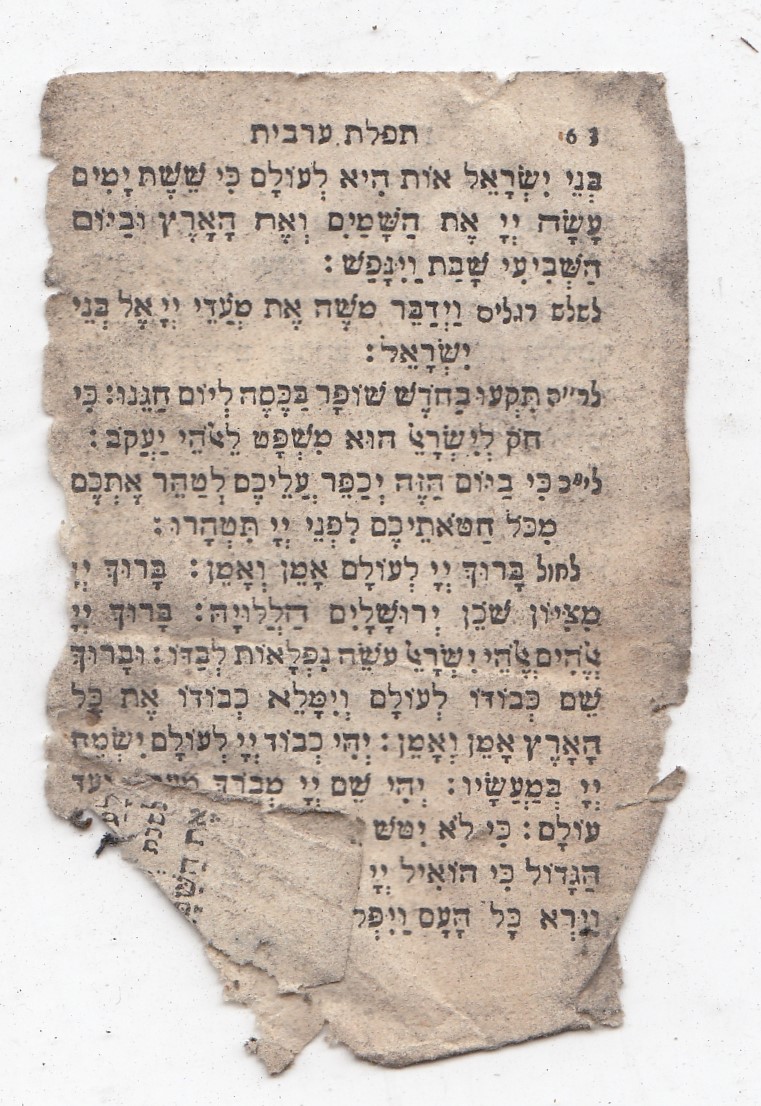 63 תפלת ערבית
בְּנֵי יִשְׂרָאֵל אוֹת הִיא לְעוֹלָם כִּי שֵׁשֶׁת יָמִים
עָשָׂה יְיָ אֶת הַשָּׁמַיִם וְאֶת הָאָרֶץ וּבַיּוֹם
הַשְּׁבִיעִי שָׁבַת וַיִּנָּפַשׁ :
לשלש רגלים וַיְדַבֵּר משֶׁה אֶת מֹעֲדֵי יְיָ אֶל בְּנֵי
יִשְׂרָאֵל :
לר״ה תִּקְעוּ בַחֹדֶשׁ שׁוֹפָר בַּכֶּסֶה לְיוֹם חַגֵּנוּ : כִּי
חֹק לְיִשְׂרָﭏ הוּא מִשְׁפָּט לֵﭏהֵי יַעֲקֹב :
לי״כ כִּי בַיּוֹם הַזֶּה יְכַפֵּר עֲלֵיכֶם לְטַהֵר אֶתְכֶם
מִכֹּל חַטֹּאתֵיכֶם לִפְנֵי יְיָ תִּטְהָרוּ :
לחול בָּרוּךְ יְיָ לְעוֹלָם אָמֵן וְאָמֵן : בָּרוּךְ יְיָ
מִצִּיּוֹן שֹׁכֵן יְרוּשָׁלָיִם הַלְלוּיָהּ : בָּרוּךְ יְיָ
ﭏהִים ﭏהֵי יִשְׂרָﭏ עֹשֵׂה נִפְלָאוֹת לְבַדּוֹ : וּבָרוּךְ
שֵׁם כְּבוֹדוֹ לְעוֹלָם וְיִמָּלֵא כְבוֹדוֹ אֶת כָּל
הָאָרֶץ אָמֵן וְאָמֵן : יְהִי כְבוֹד יְיָ לְעוֹלָם יִשְׂמַח
יְיָ בְּמַעֲשָׂיו : יְהִי שֵׁם יְיָ מְבֹרָךְ וְעַד
עוֹלָם : כִּי לֹא יִטֹּשׁ
הַגָּדוֹל כִּי הוֹאִיל יְיָ
וַיַּרְא כָּל הָעָם וַיִּפְּל